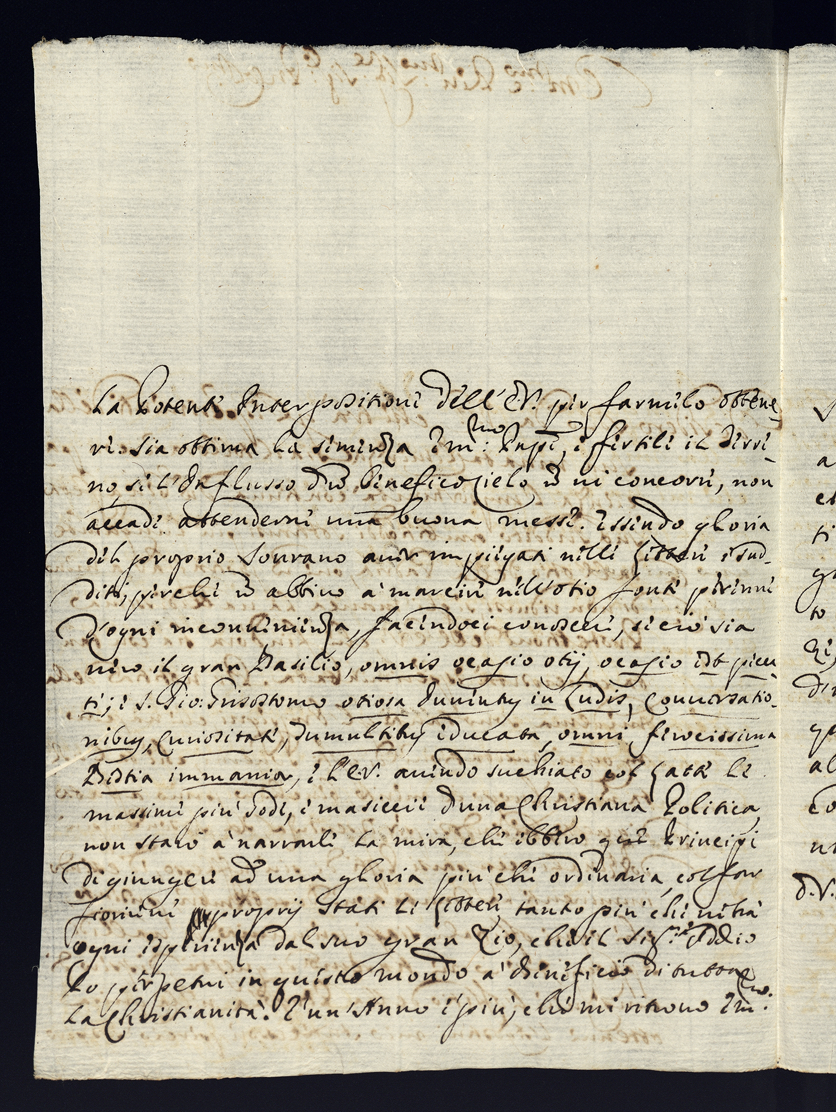 La Potente Interpositione dell'E.V. per farmelo ottene-
re. Sia ottima la semenza Em.mo: e fertile il terre-
no, se l'Influsso del benefico Cielo ni concorre, non
accade attenderne una buona messe. Essendo gloria
del proprio Sourano auer impiegati nelle lettere i sud-
diti, perche abbino a marcire nell'otio fonte perenne
d'ogni inconuenienza, facendoci conoscere, se cio sia
uero il gran Basilio, omnis ocasio otij, ocasio est pecca-
ti; e S. Gio: Grisostomo otiosa Iuuentus in Ludis, Conuersatio-
nibus, Curiositate, Tumultibus educata, omni ferocissima
Bestia immanior, e l'E.V. auendo suchiato col Latte le
massime più sode, e masiccie d'una Christiana Politica,
non starò a narrarle la mira, che ebbero Principi
di giungere ad una gloria piu che ordinaria, col far
fiorire proprij Stati le lettere, tanto piu che
ogni esperienza dal suo gran Zio, che il Sig.re Iddio
lo perpetui in questo mondo a beneficio di tutta
la Christianità. E un'Anno e più, che mi ritrouo Em.mo: